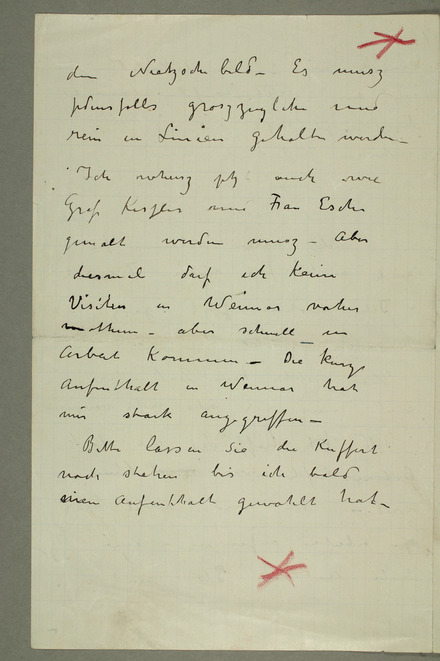 dem Nietzsche bild – Es musz
jedenfalls groszzugig und
rein in Linien gehalten werden –
Ich weisz jetz auch wie
Graf Kessler und Frau Esche
gemalt werden musz – Aber
diesmal darf ich keine
Visiten in Weimar vorher
machen – aber schnell in
Arbeit kommen – Die kurze
Aufenthalt in Weimar hat
mir stark angegriffen –
Bitte lassen Sie die Kuffert
noch stehen bis ich bald
einen Aufenthalt gewählt hat –